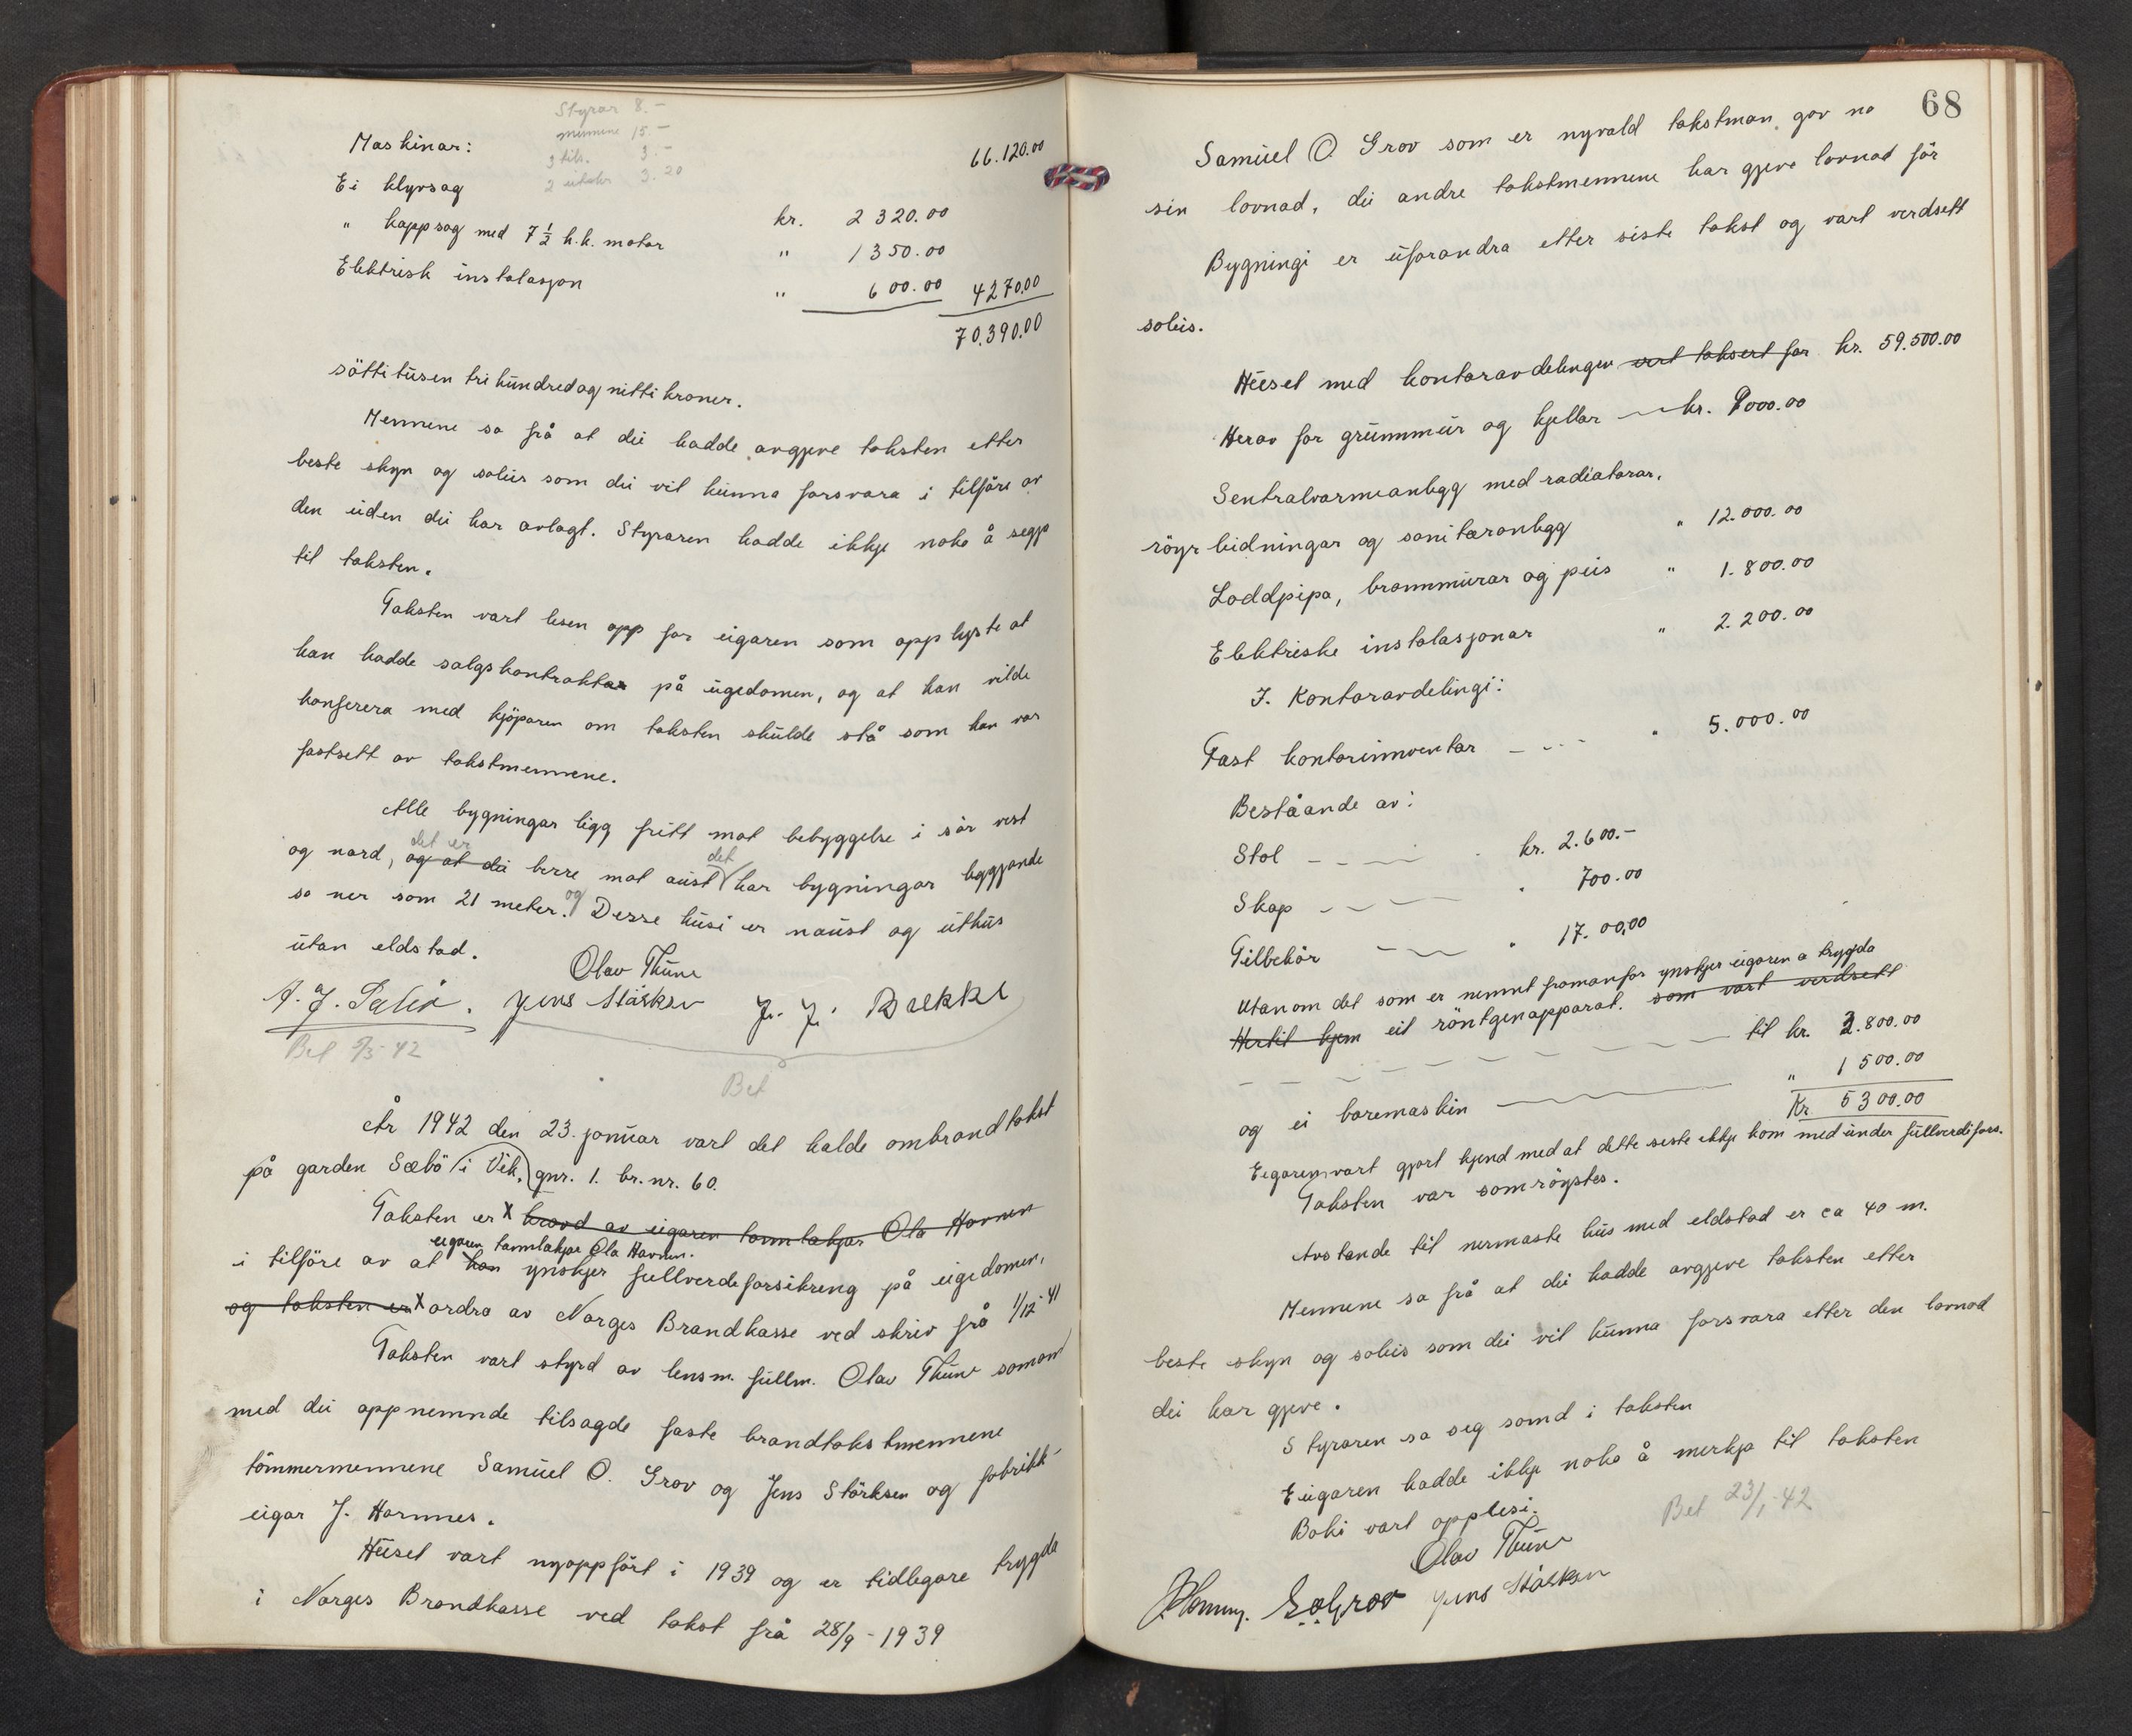 Styrar 8.-
mennene 15.-
3 tils. 3.-
2 utskr. 3.20
Maskinar:
66.120.00
Ei klyvsag kr. 2 320.00
" kappsag med 7 1/2 h.k. motor " 1 350.00
Elektrisk instalasjon " 600.00 4270.00
70.390.00
søtti tusen tri hundred og nitti kroner.
Mennene sa frå at dei hadde avgjeve taksten etter
beste skyn og soleis som dei vil kunna forsvara i tilføre av
den eiden dei har avlagt. Styraren hadde ikkje noko å segja
til taksten.
Taksten vart lesen opp for eigaren som opplyste at
han hadde salgskontrakt på eigedomen, og at han vilde
konferera med kjøparen om taksten skulde stå som han var
fastsett av takstmennene.
Alle bygningar ligg fritt mot bebyggelse i sør vest
og nord, og at dei det er berre mot aust det har bygningar liggjande
so ner som 21 meter. og Desse husi er naust og uthus
utan eldstad.
Olav Thune
Jens Størksen J. J. Bakke
Bet 5/3-42
Bet
År 1942 den 23. januar vart det halde ombrandtakst
på garden Sæbø i Vik, gnr. 1. br.nr. 60.
Taksten er x kravd av eigaren tannlækjar Ola Hovnen
eigaren tannlækjar Ola Havnen.
i tilføre av at han ynskjer fullverdeforsikreng på eigedomen,
og taksten er x ordra av Norges Brandkasse ved skriv frå 1/12-41
Taksten vart styrd av lensm. fullm. Olav Thune saman
med dei oppnemnde tilsagde faste brandtakstmennene
tømmermennene Samuel O. Grov og Jens Størksen og fabrikk-
eigar J. Hamnes.
Huset vart nyoppført i 1939 og er tidlegare trygda
i Norges Brandkasse ved takst frå 28/9-1939
68
Samuel O. Grov som er nyvald takstman, gav no
sin lovnad, dei andre takstmennene har gjeve lovnad før
Bygningi er uforandra etter siste takst og vart verdsett
soleis.
Huset med kontoravdelingen vert taksert for kr. 59.500.00
Herav for grunnmur og kjellar kr. 9000.00
Sentralvarmeanlegg med radiatorar,
røyrleidningar og sanitæranlegg " 12.000.00
Loddpipa, brannmurar og peis " 1.800.00
Elektriske instalasjonar " 2.200.00
I. Kontoravdelingi:
Fast kontorinnventar " 5.000.00
Beståande av:
Stol kr. 2.600.-
Skap " 700.00
Tilbehør " 17.00,00
Utanom det som er nemnt framanfor ynskjer eigaren a trygda
Hertil kjem eit røntgenapparat. som vart verdsett
til kr. 3.800.00
og ei boremaskin " 1 500.00
Kr 5300.00
Eigaren vart gjort kjend med at dette siste ikkje kom med under fullverdifors.
Taksten var samrøystes.
Avstande til nermaste hus med eldstad er ca 40 m.
Mennene sa frå at dei hadde avgjeve taksten etter
beste skyn og soleis som dei vil kunna forsvara etter den lovnad
dei har gjeve.
Styraren sa seg samd i taksten
Eigaren hadde ikkje noko å merkja til taksten
Boki vart opplesi.
Bet 23/1-42
Olav Thune
S O Grov Jens Størksen